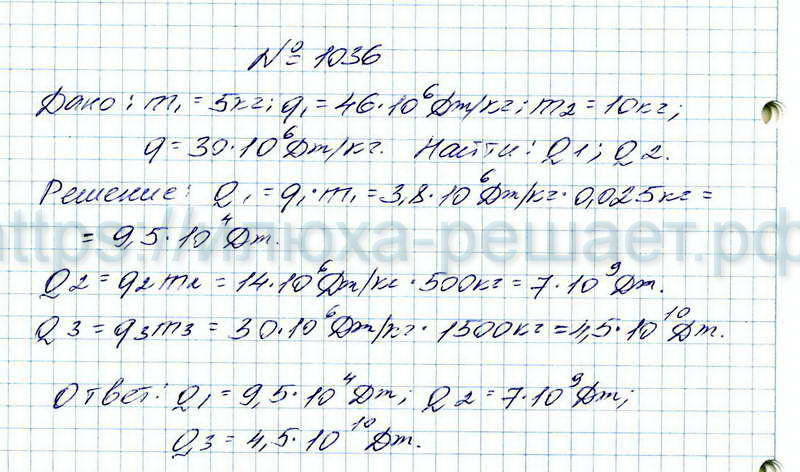 № 1036
Дано: m₁ = 5кг; q₁ = 46·10⁶ Дж/кг; m2 = 10кг;
q = 30·10⁶ Дж/кг. Найти: Q1; Q2.
Решение: Q₁ = q₁·m₁ = 3,8·10⁶ Дж/кг·0,025кг =
= 9,5·10⁴ Дж.
https://илюха-решает.рф
Q2 = q2m2 = 14·10⁶ Дж/кг · 500кг = 7·10⁹ Дж.
Q3 = q3m3 = 30·10⁶ Дж/кг · 1500кг = 4,5·10¹⁰ Дж.
Ответ: Q₁ = 9,5·10⁴ Дж; Q2 = 7·10⁹ Дж;
Q3 = 4,5·10¹⁰ Дж.